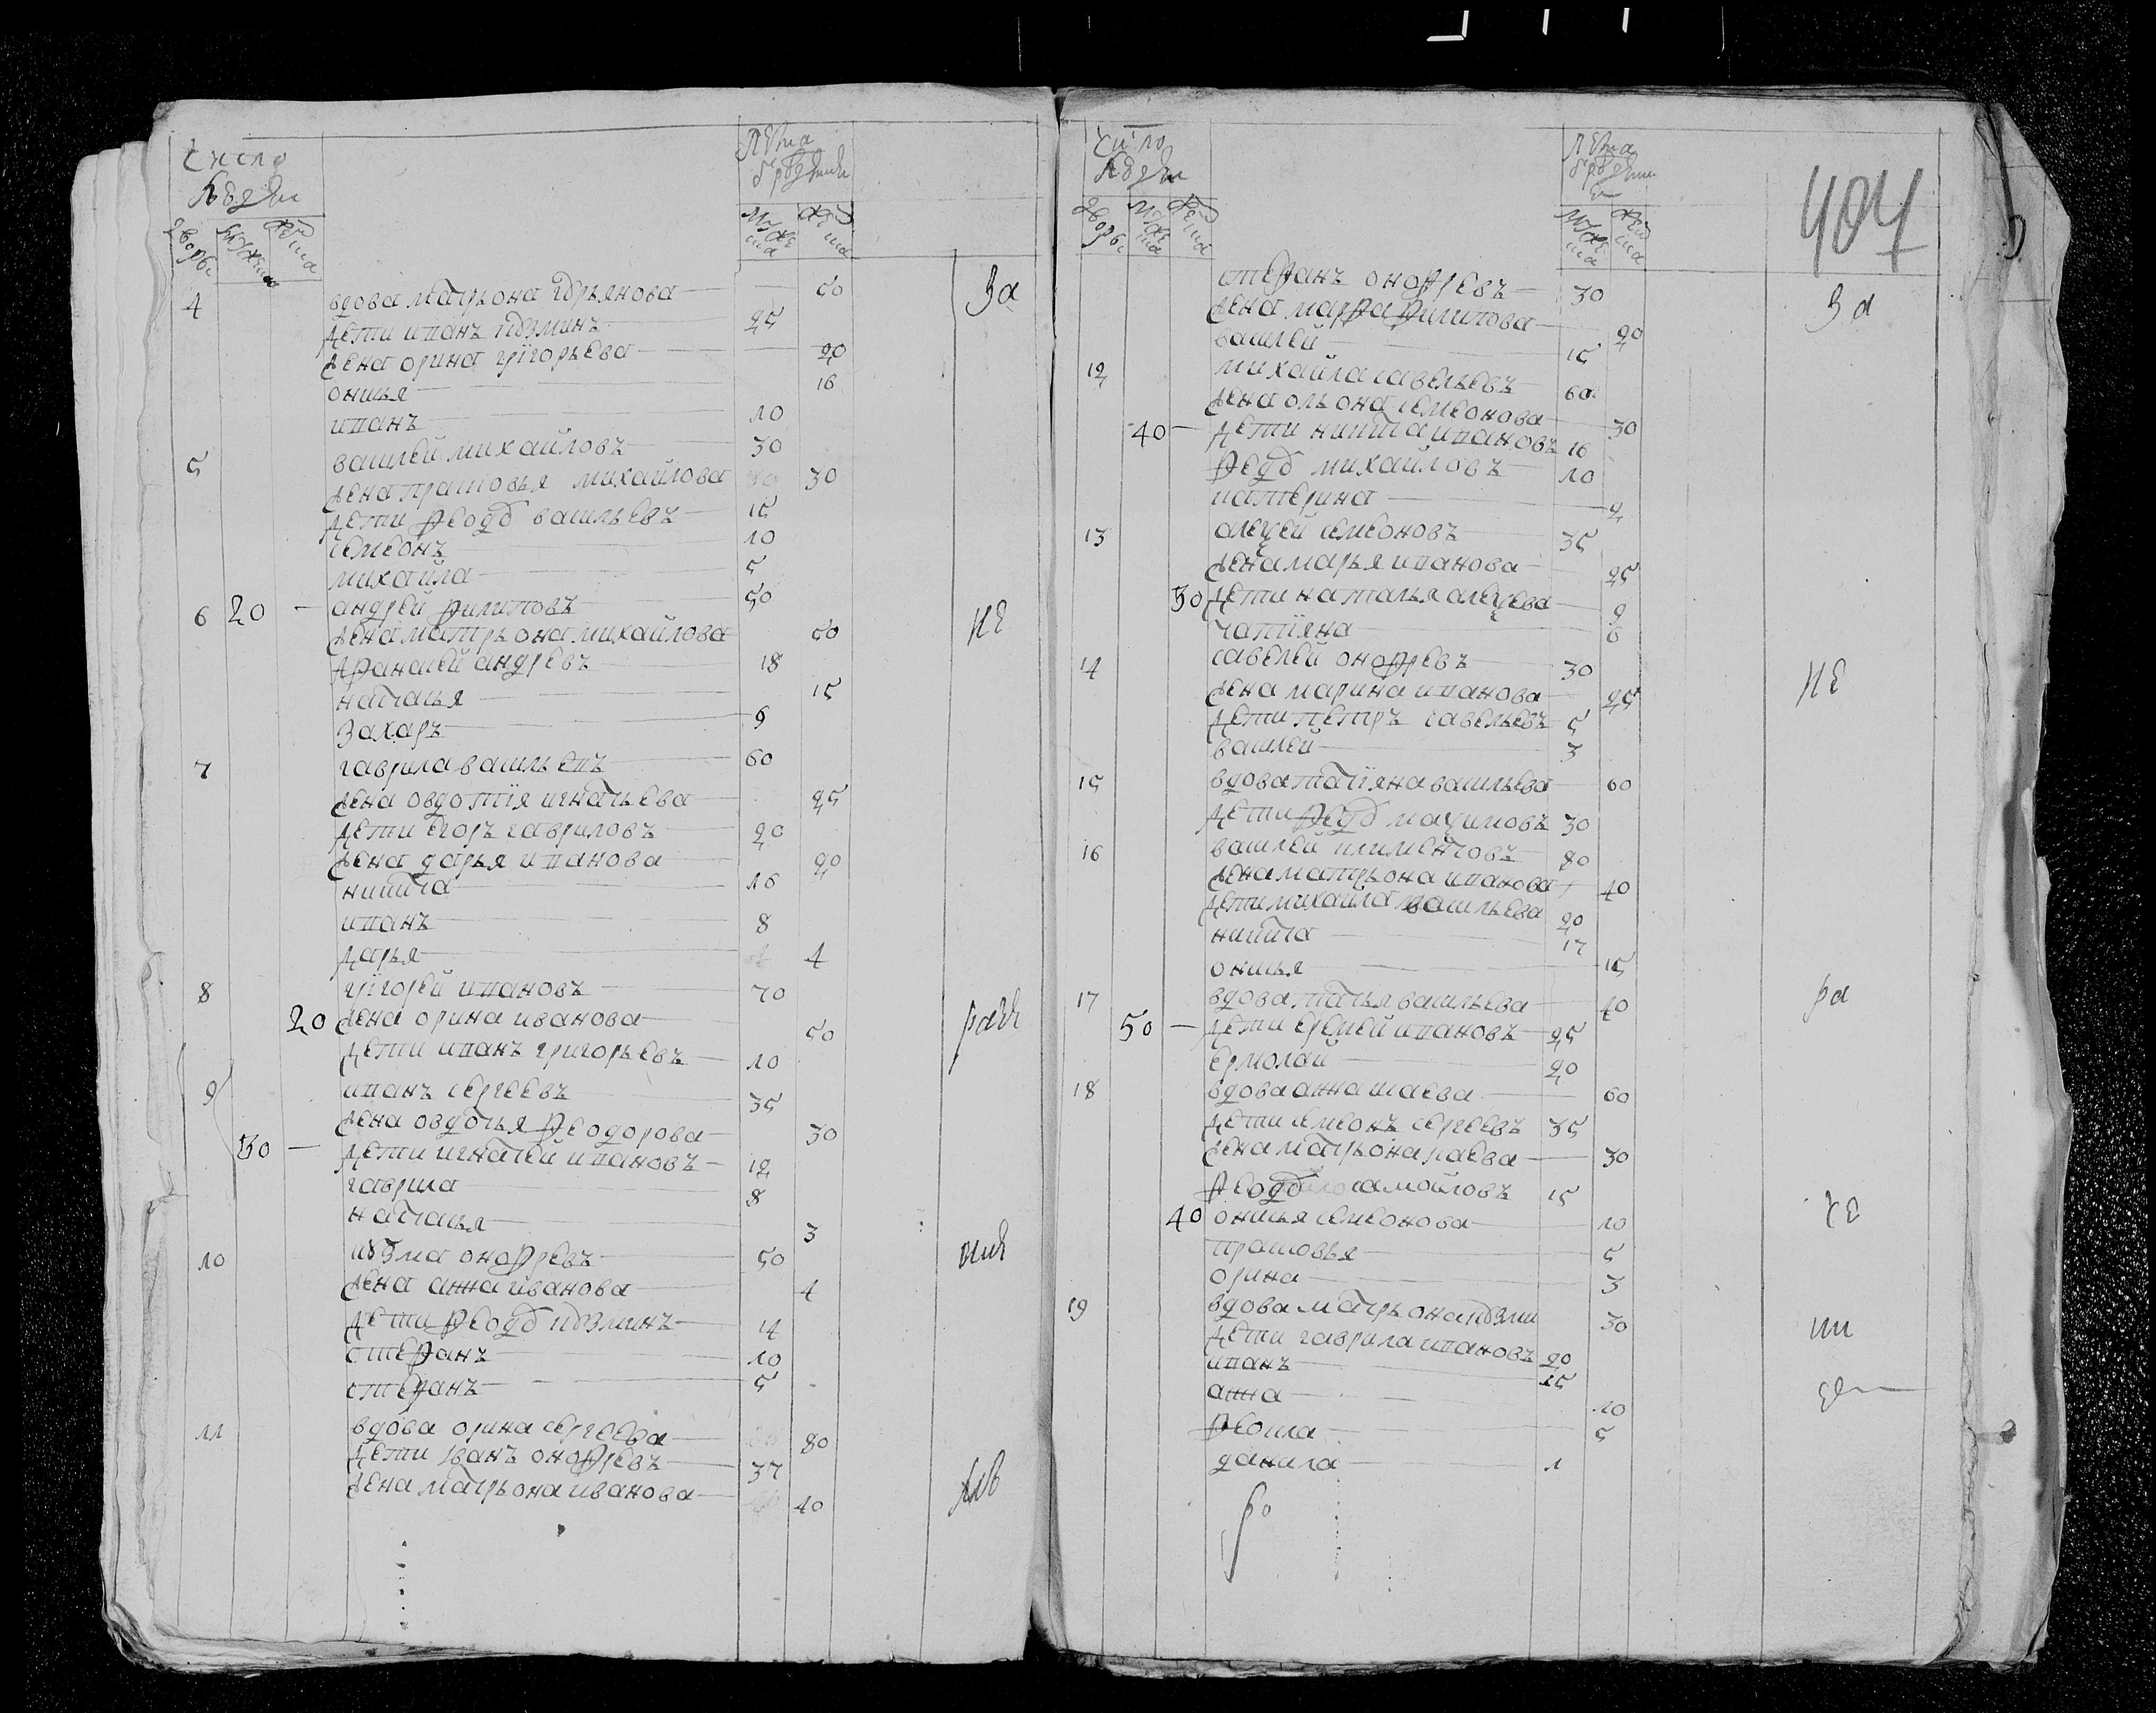 Число
Людеи
дворы
мужеска
женска
Лѣта
от рождения
мужеска
женска
4 вдова матрьона гурьянова 50
За
дети иванъ кузминъ 25
жена орина григорьева 20
онисья 16
иванъ 10
5 василей михайловъ 30
жена прасковья михайлова 30
дети феодоръ васильевъ 15
семеонъ 10
михайла 5
6 20 андрей филиповъ 50
жена матрьона михайлова 50
не
афанасей андреевъ 18
наталья 15
захаръ 9
7 гаврила васильевъ 60
жена овдотия игнатьева 25
дети егоръ гавриловъ 20
жена дарья иванова 20
никита 10
иванъ 8
дарья 4
8 григорей ивановъ 70
20 жена орина иванова 50
дети иванъ григорьевъ 10
9 иванъ сергеевъ 35
жена овдотья феодорова 30
30 дети игнатей ивановъ 12
гаврила 8
наталья 3
10 кузма онофреевъ 50
жена анна иванова 4
дети феодоръ кузминъ 14
стефанъ 10
степанъ 5
11 вдова орина сергеева 80
дети иванъ онофреевъ 37
жена матрьона иванова 40
Число
Людеи
дворы
мужеска
женска
Лѣта
от рождения
мужеска
женска
404
стефанъ онофреевъ 30
За
жена марфа филипова 20
василей 15
12 михайла савельевъ 60
жена ольона семеонова 30
40 дети никита ивановъ 16
феодоръ михайловъ 10
катерина 2
13 алексей семеоновъ 35
жена марья иванова 25
30 дети наталья алексеева 9
татияна 6
14 савелей онофреевъ 30
не
жена марина иванова 25
дети петръ савельевъ 5
василей 3
15 вдова татияна васильева 60
дети феодоръ максимовъ 30
16 василей климентовъ 80
жена матрьона иванова 40
дети михайла васильева 20
никита 17
онисья 15
17 вдова татья васильева 40
ра
50 дети еремей ивановъ 25
ермолай 20
18 вдова анна исаева 60
дети семеонъ сергеевъ 35
жена матрьона исаева 30
феодоръ самойловъ 15
40 онисья семеонова 10
прасковья 5
орина 3
19 вдова матрьона кузми 30
дети гаврила ивановъ 20
иванъ 15
анна 10
феокла 5
данила 1